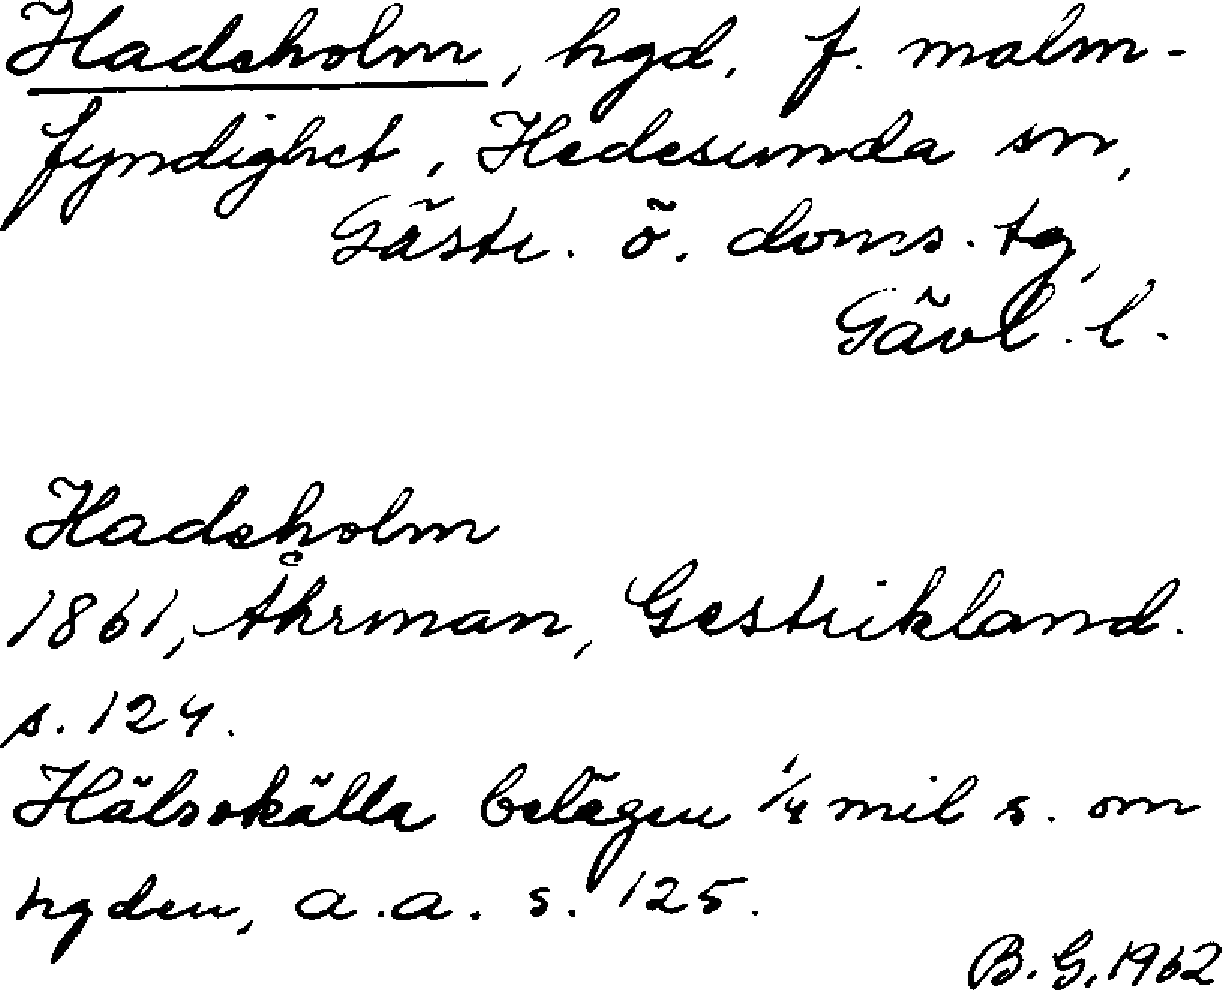 Hadeholm, hgd. f. malm-
fyndighet, Hedesunda sn,
Gästr. ö. doms. tg,
Gävl. l.
Hadeholm
1861, Åkrman, Gestrikland.
s. 124.
Hälsokälla belägen 1/4 mil s. om
hgden, a.a. s. 125.
B.G. 1962